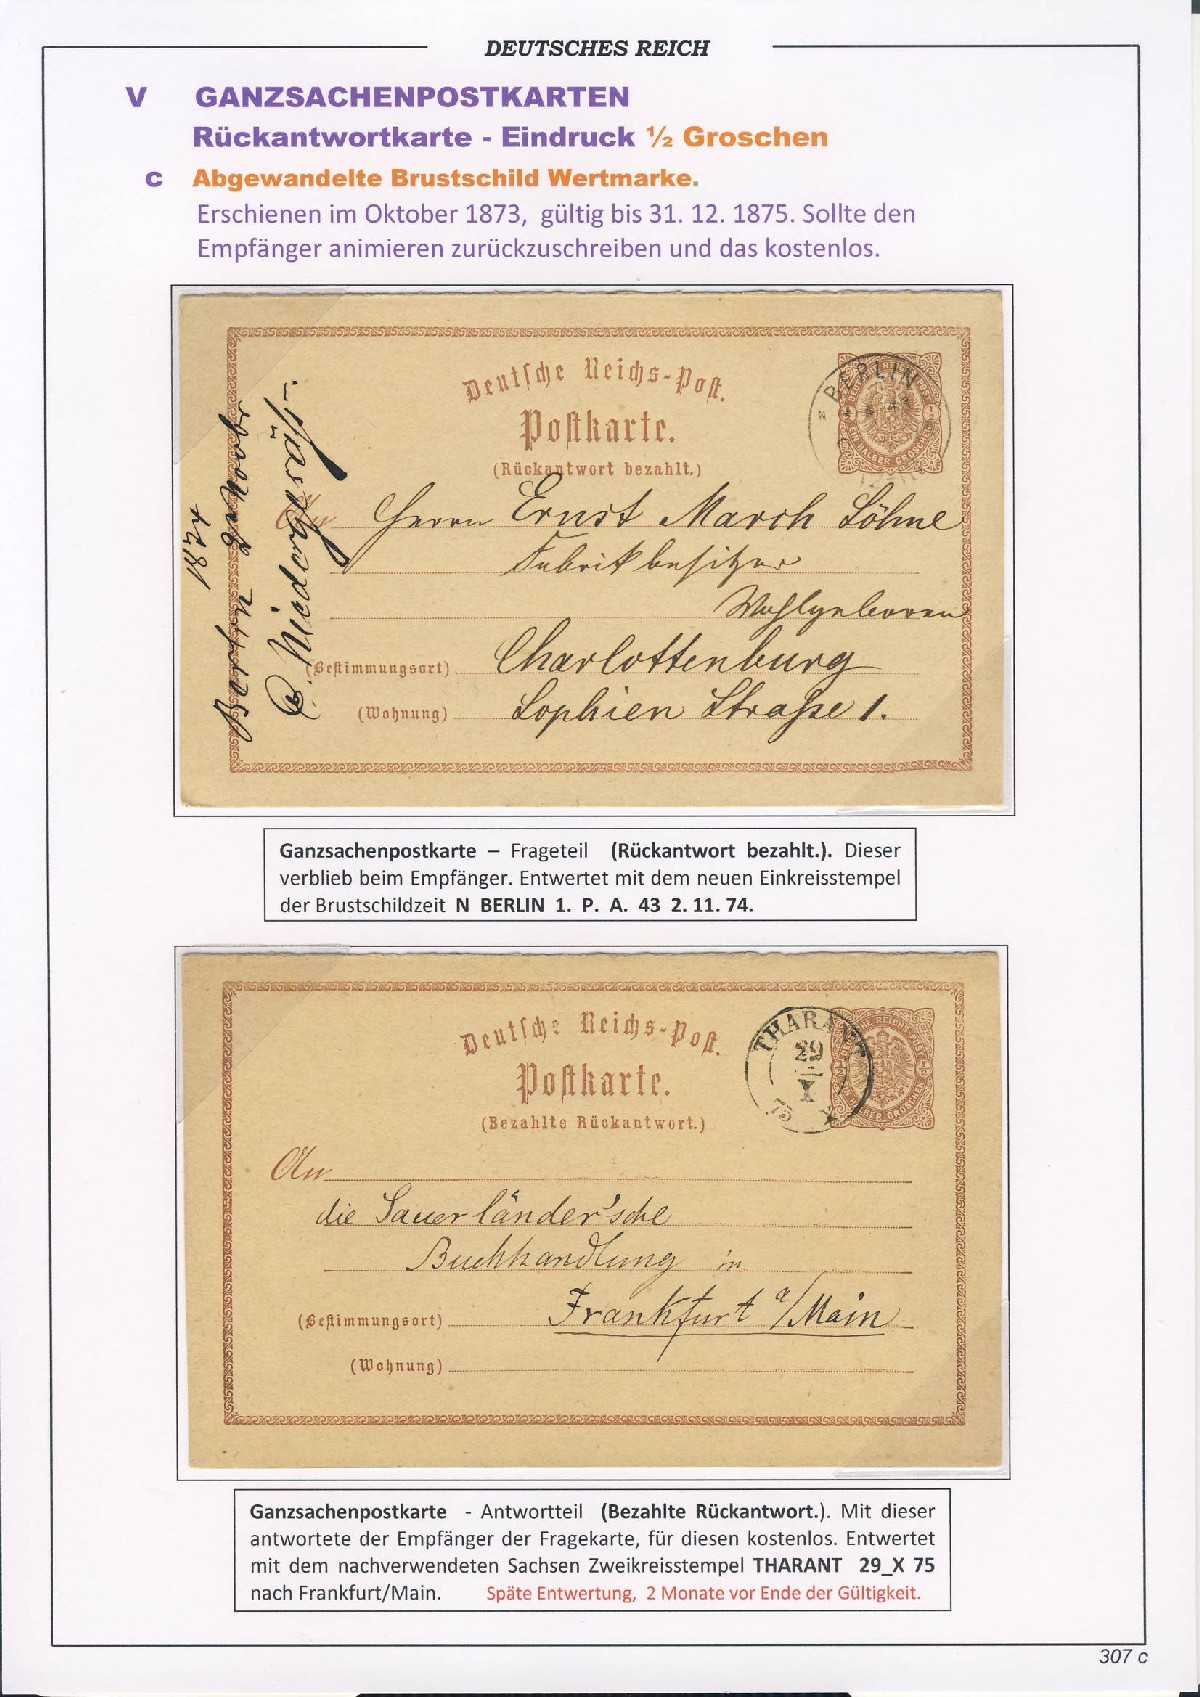 DEUTSCHES REICH
V GANZSACHENPOSTKARTEN
Rückantwortkarte - Eindruck ½ Groschen
C Abgewandelte Brustschild Wertmarke.
Erschienen im Oktober 1873, gültig bis 31. 12. 1875. Sollte den
Empfänger animieren zurückzuschreiben und das kostenlos.
Deutsche Reichs-Post.
Postkarte.
(Rückantwort bezahlt.)
BERLIN
EIN HALBER GROSCHEN
An Herrn Ernst March Söhne
Fabrikbesitzer
Wohlgeboren
(Bestimmungsort) Charlottenburg
(Wohnung) Sophien Straße 1.
Berlin 2 Novbr
1874
Ganzsachenpostkarte – Frageteil (Rückantwort bezahlt.). Dieser
verblieb beim Empfänger. Entwertet mit dem neuen Einkreisstempel
der Brustschildzeit N BERLIN 1. P. A. 43 2. 11. 74.
Deutsche Reichs-Post.
Postkarte.
(Bezahlte Rückantwort.)
THARANT
29
X
75
An
die Sauerländer'sche
Buchhandlung in
(Bestimmungsort) Frankfurt a/Main
(Wohnung)
Ganzsachenpostkarte - Antwortteil (Bezahlte Rückantwort.). Mit dieser
antwortete der Empfänger der Fragekarte, für diesen kostenlos. Entwertet
mit dem nachverwendeten Sachsen Zweikreisstempel THARANT 29_X 75
nach Frankfurt/Main. Späte Entwertung, 2 Monate vor Ende der Gültigkeit.
307 c